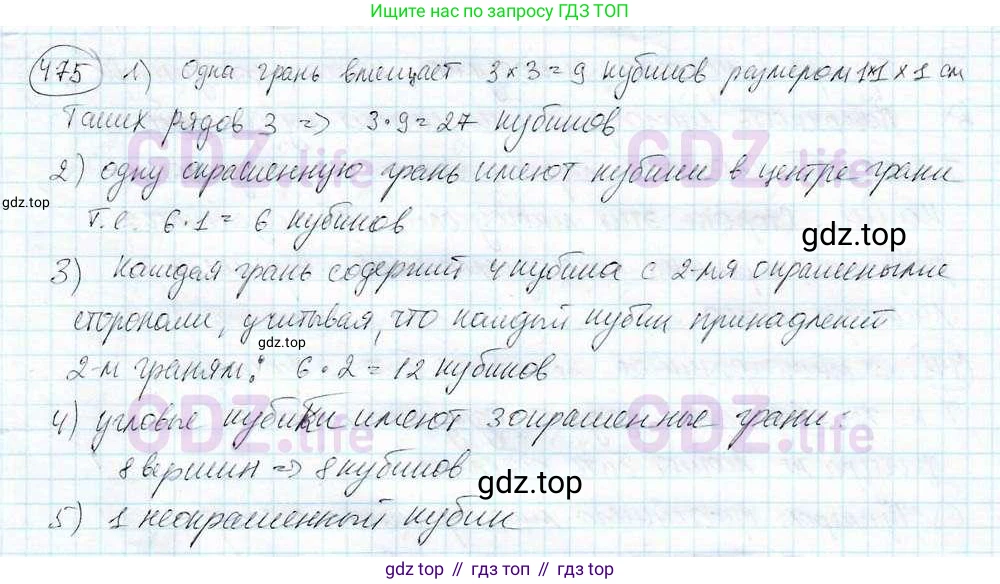 Ищите нас по запросу ГДЗ ТОП
475 1) Одна грань вмещает 3×3=9 кубиков размером 1×1×1 см
Таких рядов 3 => 3·9=27 кубиков
GDZ.life GDZ.life
2) одну окрашенную грань имеют кубики в центре грани
gdz.top
т.е. 6·1= 6 кубиков
gdz.top
3) Каждая грань содержит 4 кубика с 2-мя окрашеными
сторонами, учитывая, что каждый кубик принадлежит
gdz.top
2-м граням: 6·2=12 кубиков
GDZ.life GDZ.life
4) угловые кубики имеют 3 окрашенные грани:
8 вершин => 8 кубиков
gdz.top
5) 1 неокрашенный кубик
gdz.top // гдз топ // гдз.топ